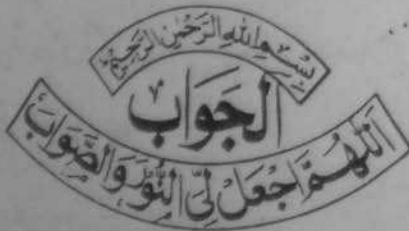 بِسْمِ اللهِ الرَّحْمٰنِ الرَّحِيْمِ
الجَوَاب
اَللّٰهُمَّ اجْعَلْ لِّي النُّوْرَ وَالصَّوَابَ